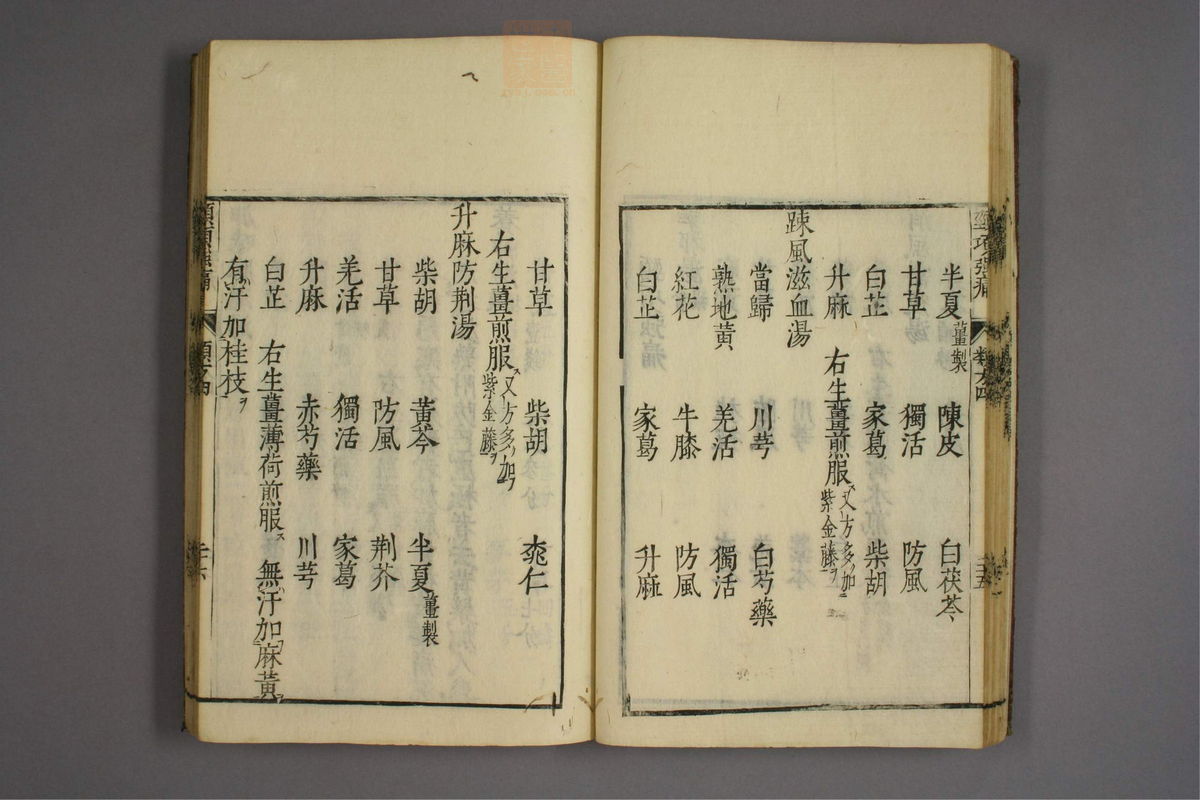 半夏薑製 陳皮 白茯苓
甘草 獨活 防風
白芷 家葛 柴胡
升麻 右生薑煎服ス又方多ク加ニ紫金藤ヲ
踈風滋血湯
當歸 川芎 白芍藥
熟地黃 羌活 獨活
紅花 牛膝 防風
白芷 家葛 升麻
甘草 柴胡 桃仁
右生薑煎服ス又方多ク加ヲ紫金藤ヲ
升麻防荆湯
柴胡 黃芩 半夏薑製
甘草 防風 荆芥
羌活 獨活 家葛
升麻 赤芍藥 川芎
白芷 右生薑薄荷煎服ス 無汗加麻黃ヲ
有汗加桂枝ヲ
頸項強痛 類方四 二十六